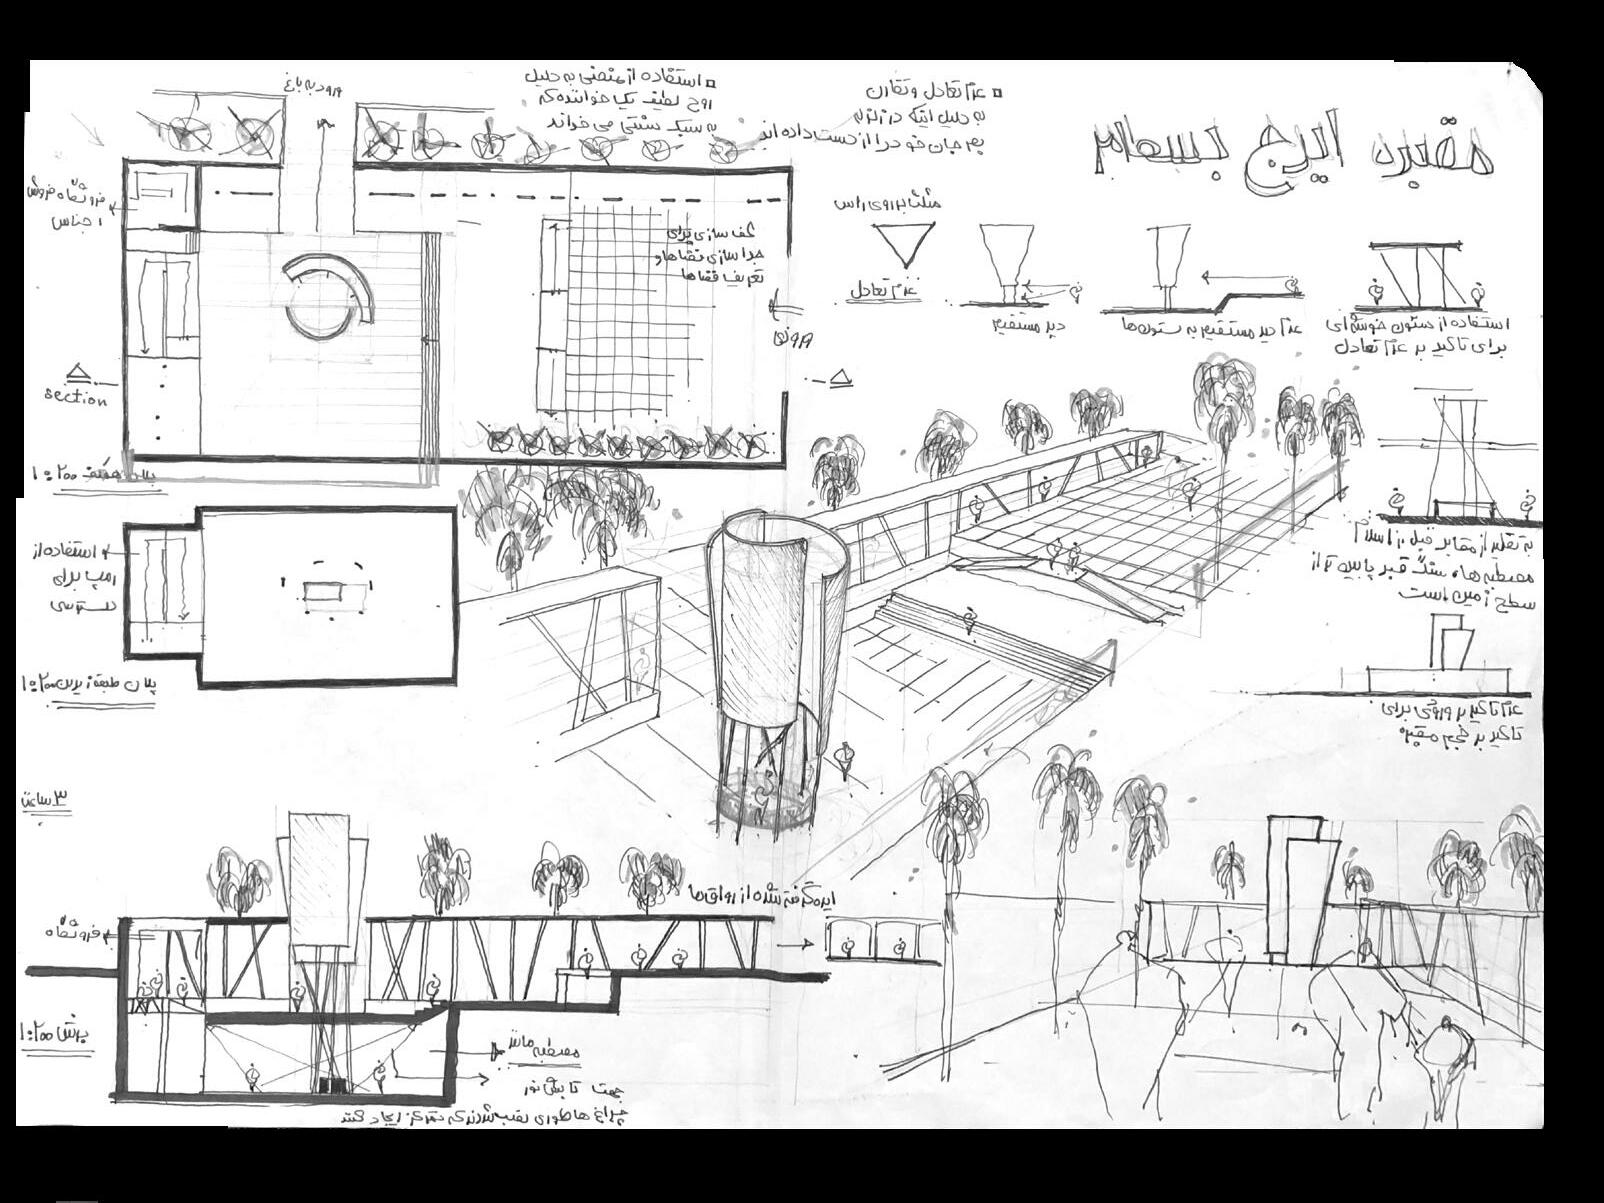 مقبره ایرج بسطامی
ورود به باغ
استفاده از منحنی به دلیل
روح لطیف یک خواننده که
به سبک سنتی می خواند
عدم تعادل و تقارن
به دلیل اینکه در زلزله
بم جان خود را از دست داده اند
فروشگاه فروش
اجناس
کف سازی برای
جدا سازی فضاها و
تعریف فضاها
ورودی
section
پلان همکف ۱:۲۰۰
مثلث بر روی راس
عدم تعادل
دید مستقیم
عدم دید مستقیم به ستون‌ها
استفاده از ستون خوشه ای
برای تاکید بر عدم تعادل
به تقلید از مقابر قبل از اسلام
مصطبه ها، سنگ قبر پایین تر از
سطح زمین است
عدم تاکید بر ورودی برای
تاکید بر حجم مقبره
استفاده از
رمپ برای
دسترسی
پلان طبقه زیرین ۱:۲۰۰
۳ ساعت
ایده گرفته شده از رواق‌ها
فروشگاه
برش ۱:۲۰۰
مصطبه مانند
جهت تابش نور
چراغ ها طوری نصب شدند که تمرکز ایجاد کنند